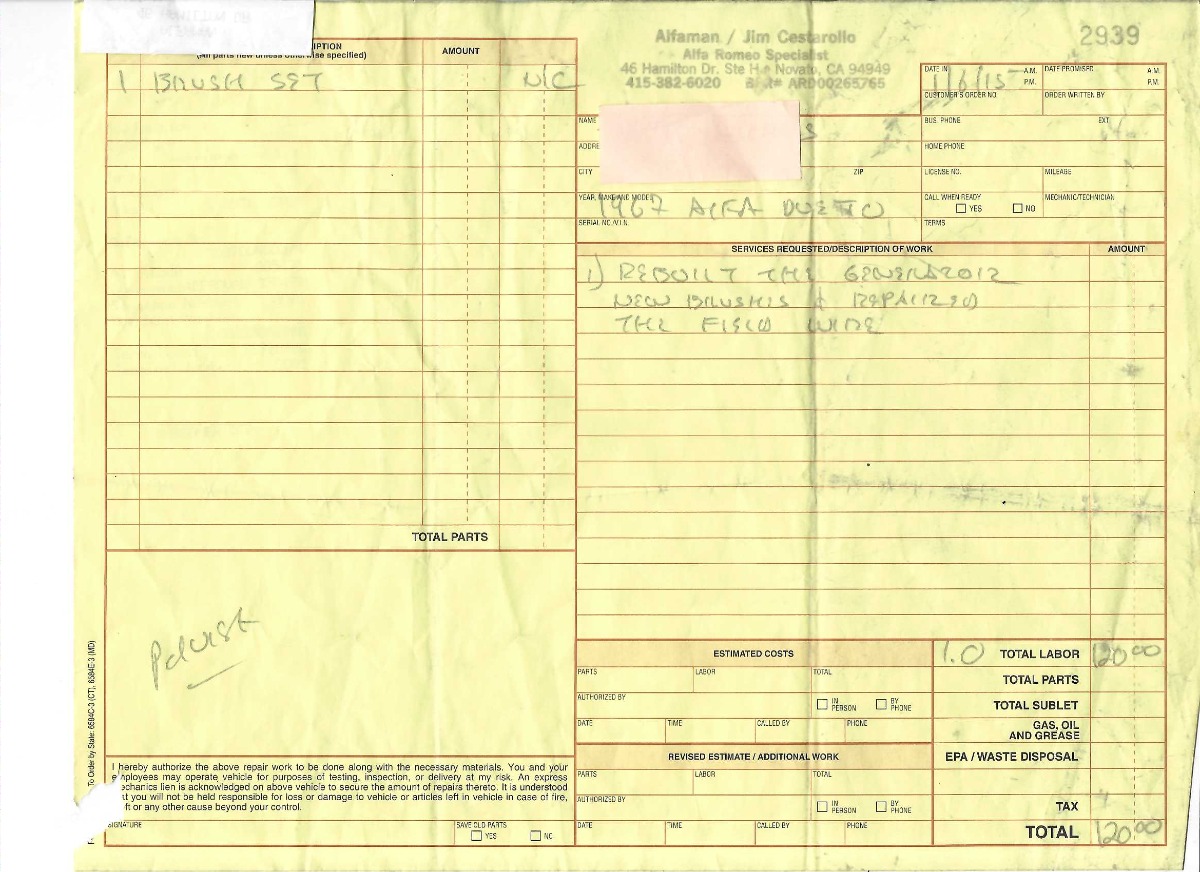 Alfaman / Jim Cestarollo
2939
Alfa Romeo Specialist
46 Hamilton Dr. Ste H Novato, CA 94949
415-382-6020 ARD00265765
(All parts new unless otherwise specified)
AMOUNT
1 BRUSH SET N/C
DATE IN 1/6/15 A.M. P.M.
DATE PROMISED A.M. P.M.
CUSTOMER'S ORDER NO.
ORDER WRITTEN BY
NAME
BUS. PHONE EXT.
ADDRE
HOME PHONE
CITY ZIP
LICENSE NO. MILEAGE
YEAR, MAKE AND MODEL
1967 ALFA DUETTO
CALL WHEN READY
YES NO
MECHANIC/TECHNICIAN
SERIAL NO./V.I.N.
TERMS
SERVICES REQUESTED/DESCRIPTION OF WORK AMOUNT
1) REBUILT THE GENERATOR
NEW BRUSHES & REPAIRED
THE FIELD WIRE
TOTAL PARTS
Pd
ESTIMATED COSTS
PARTS LABOR TOTAL
AUTHORIZED BY
IN PERSON BY PHONE
DATE TIME CALLED BY PHONE
REVISED ESTIMATE / ADDITIONAL WORK
PARTS LABOR TOTAL
AUTHORIZED BY
IN PERSON BY PHONE
DATE TIME CALLED BY PHONE
1.0 TOTAL LABOR 120 00
TOTAL PARTS
TOTAL SUBLET
GAS, OIL
AND GREASE
EPA / WASTE DISPOSAL
TAX
TOTAL 120 00
I hereby authorize the above repair work to be done along with the necessary materials. You and your
employees may operate vehicle for purposes of testing, inspection, or delivery at my risk. An express
echanics lien is acknowledged on above vehicle to secure the amount of repairs thereto. It is understood
t you will not be held responsible for loss or damage to vehicle or articles left in vehicle in case of fire,
ft or any other cause beyond your control.
SIGNATURE
SAVE OLD PARTS
YES NO
To Order by State: 6584C-3 (CT), 6584E-3 (MD)